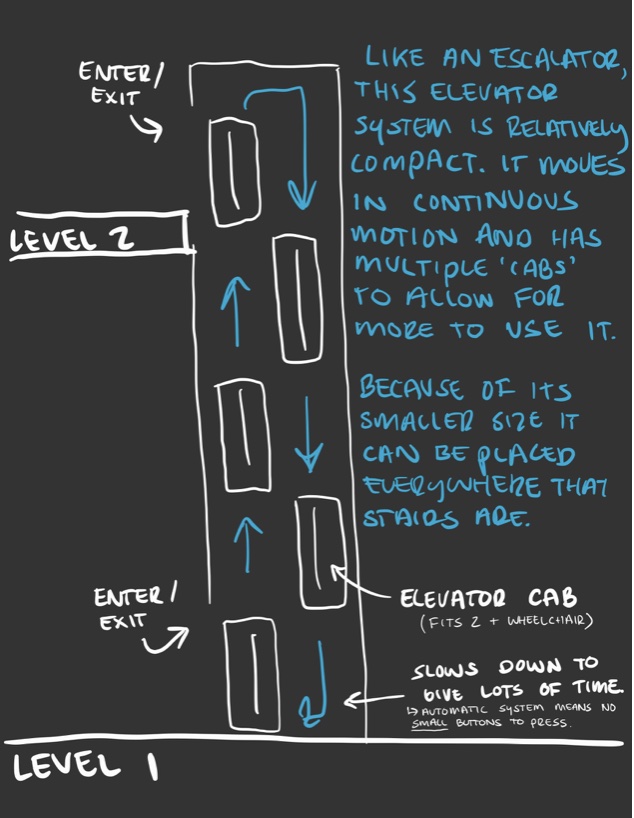 ENTER/
EXIT
LIKE AN ESCALATOR,
THIS ELEVATOR
SYSTEM IS RELATIVELY
COMPACT. IT MOVES
IN CONTINUOUS
MOTION AND HAS
MULTIPLE 'CABS'
TO ALLOW FOR
MORE TO USE IT.
LEVEL 2
BECAUSE OF ITS
SMALLER SIZE IT
CAN BE PLACED
EVERYWHERE THAT
STAIRS ARE.
ENTER/
EXIT
ELEVATOR CAB
(FITS 2 + WHEELCHAIR)
SLOWS DOWN TO
GIVE LOTS OF TIME.
↳ AUTOMATIC SYSTEM MEANS NO
SMALL BUTTONS TO PRESS.
LEVEL 1